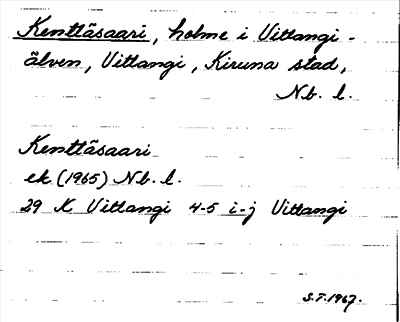 Kenttäsaari, holme i Vittangi-
älven, Vittangi, Kiruna stad,
Nb. l.
Kenttäsaari
ek (1965) Nb. l.
29 K Vittangi 4-5 i-j Vittangi
S.T. 1967.